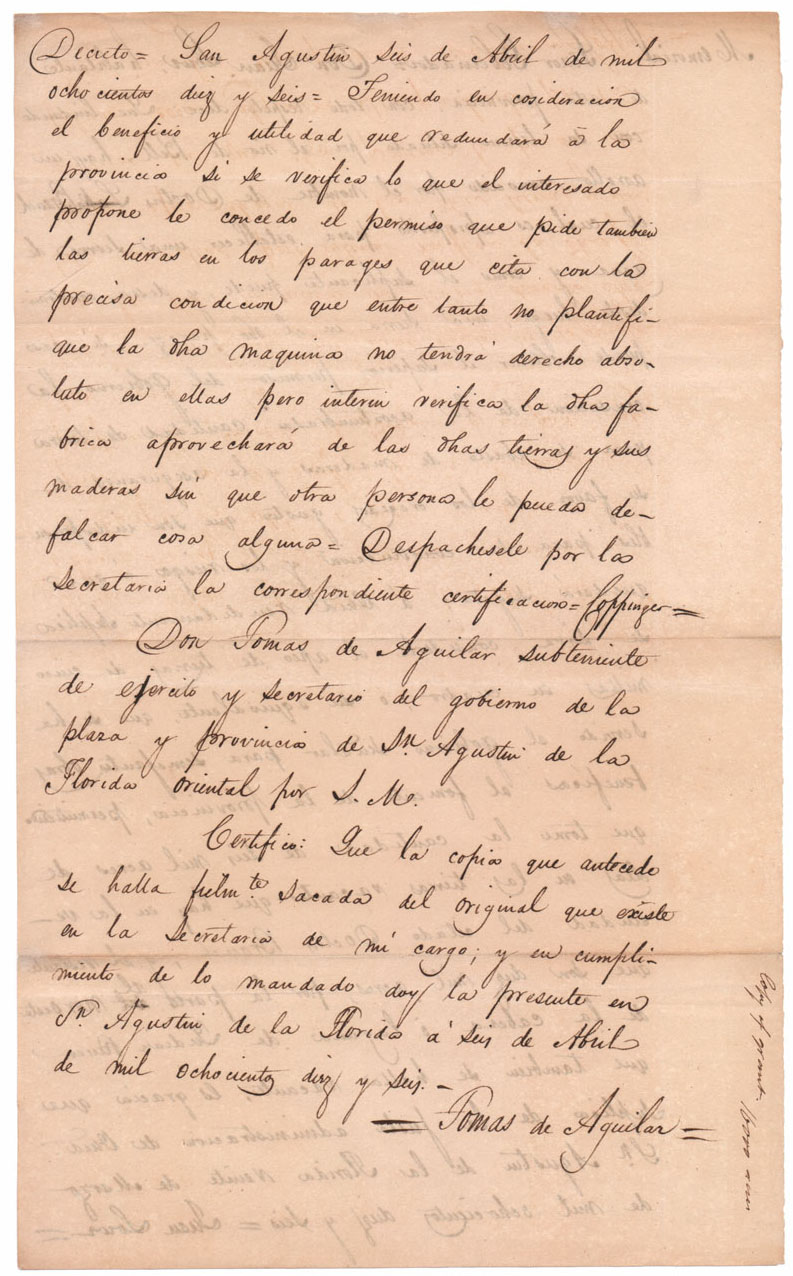 Decreto = San Agustin seis de Abril de mil
ochocientos diez y seis = Teniendo en cosideracion
el beneficio y utilidad que redundará á la
provincia si se verifica lo que el interesado
propone le concedo el permiso que pide tambien
las tierras en los parages que cita con la
precisa condicion que entre tanto no plantifi-
que la dha maquina no tendrá derecho abso-
luto en ellas pero interin verifica la dha fa-
brica aprovechará de las dhas tierras y sus
maderas sin que otra persona le pueda de-
falcar cosa alguna = Despachesele por la
secretaria la correspondiente certificacion = Coppinger =
Don Tomas de Aguilar subteniente
de ejercito y secretario del gobierno de la
plaza y provincia de Sn. Agustin de la
Florida oriental por S. M.
Certifico: Que la copia que antecede
se halla fielmte. sacada del original que existe
en la secretaria de mi cargo; y en cumpli-
miento de lo mandado doy la presente en
Sn. Agustin de la Florida á seis de Abril
de mil ochocientos diez y seis. -
= Tomas de Aguilar =
Copy of grant